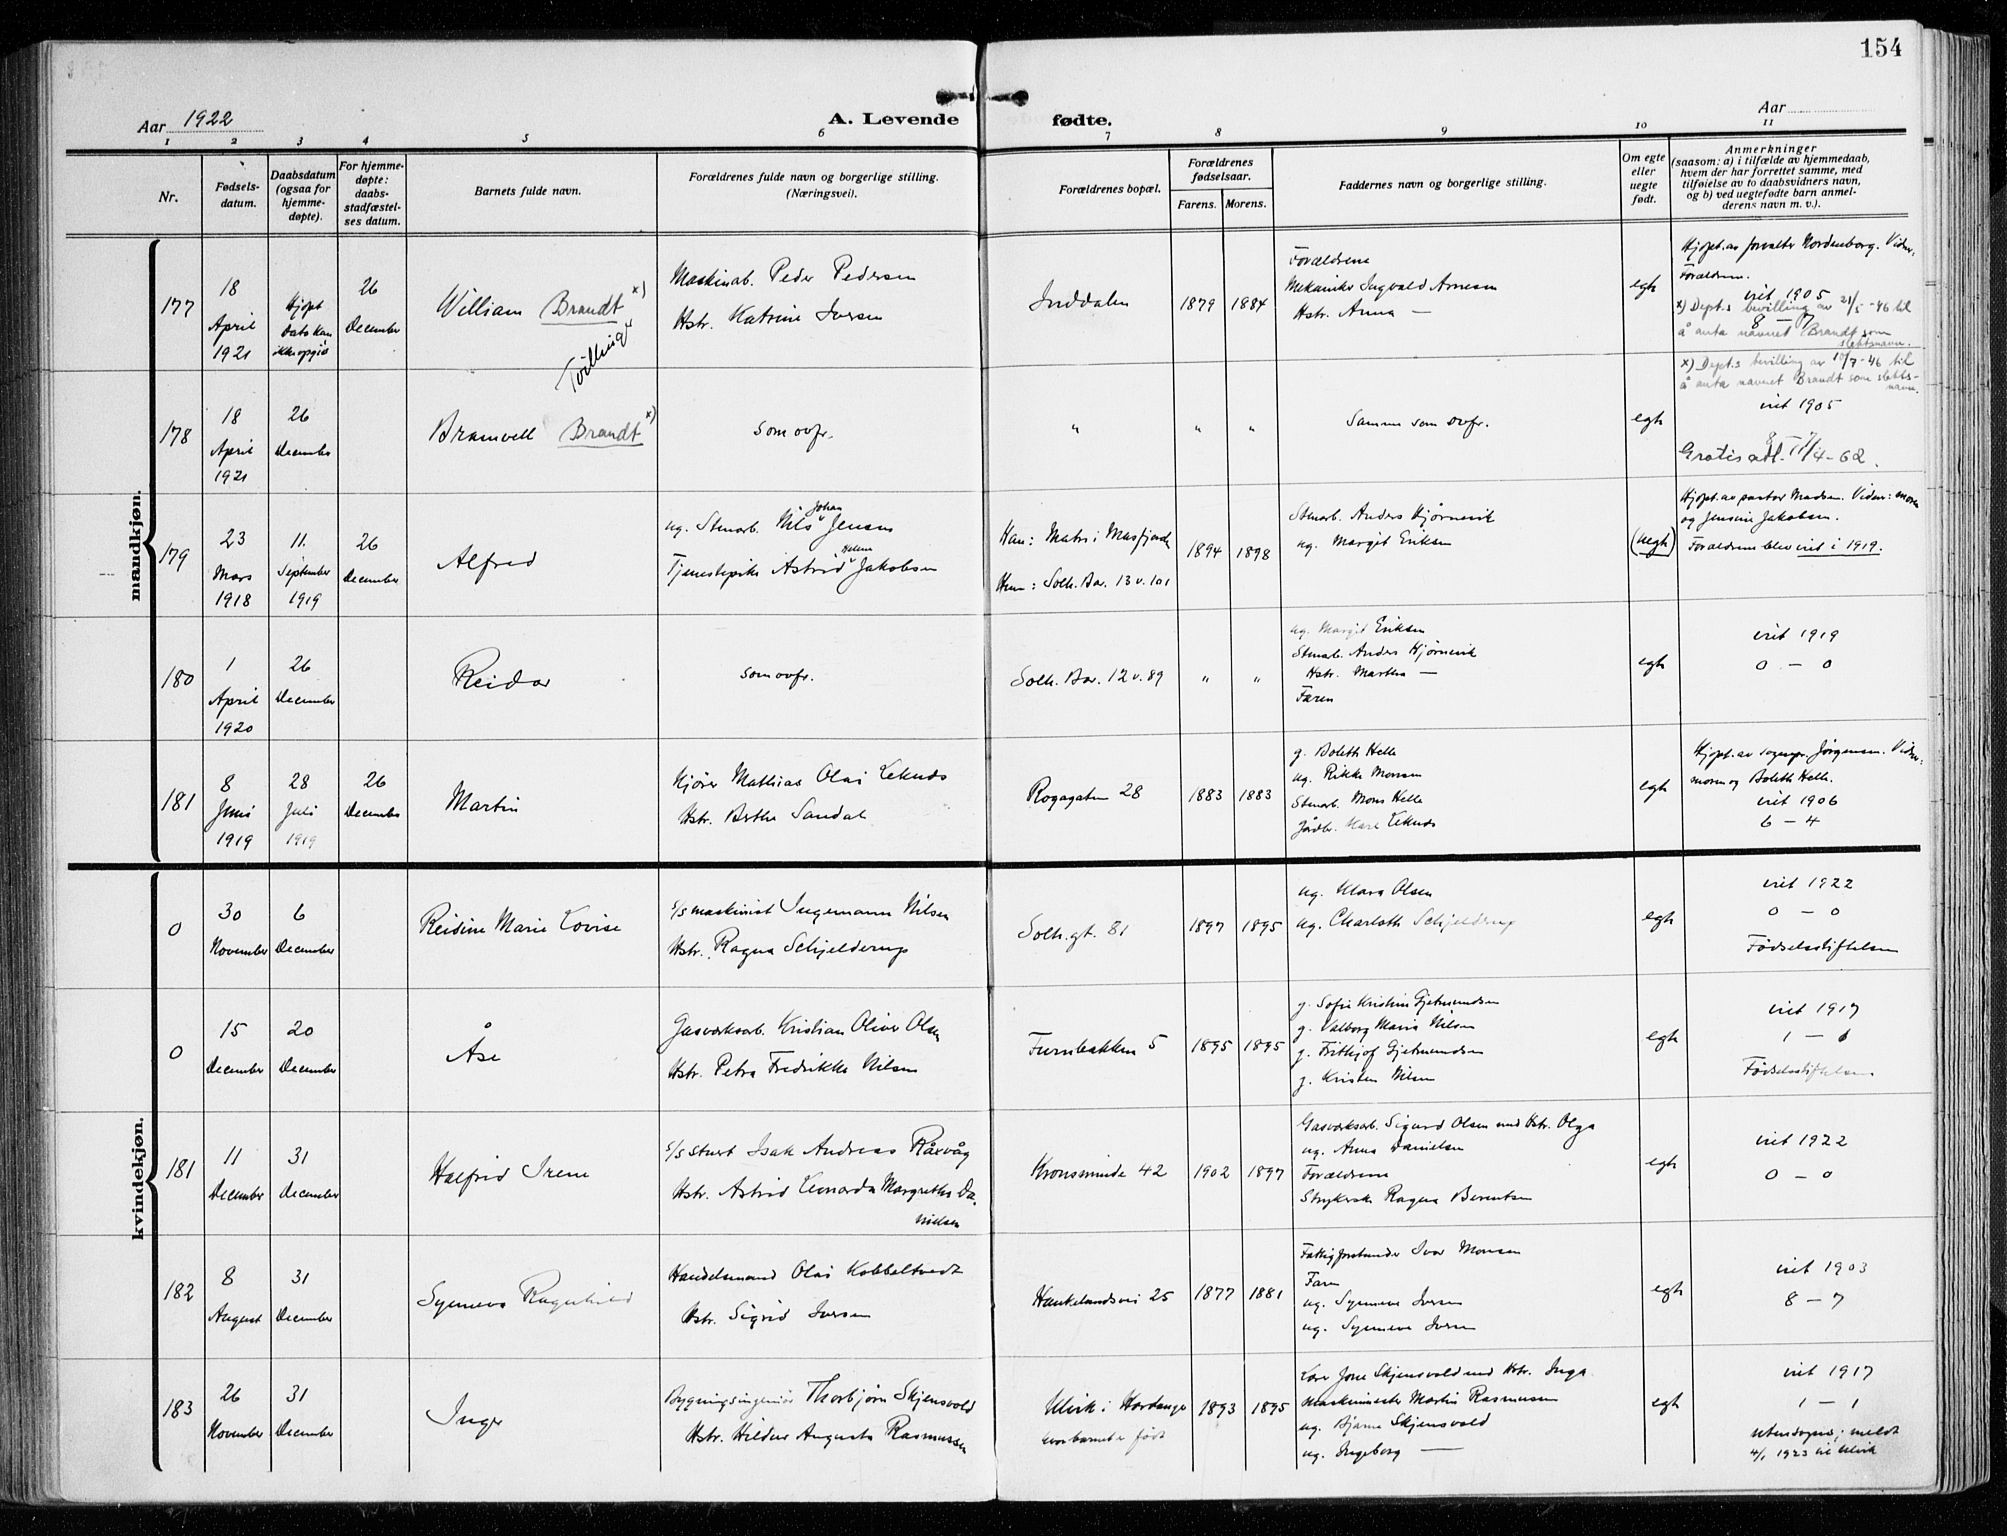 154
Aar 1922
A. Levende fødte.
Aar
1 2 3 4 5 6 7 8 9 10 11
Nr.
Fødsels-
datum.
Daabsdatum
(ogsaa for
hjemme-
døpte).
For hjemme-
døpte:
daabs-
stadfæstel-
ses datum.
Barnets fulde navn.
Forældrenes fulde navn og borgerlige stilling.
(Næringsvei).
Forældrenes bopæl.
Forældrenes
fødselsaar.
Farens. Morens.
Faddernes navn og borgerlige stilling.
Om egte
eller
uegte
født.
Anmerkninger
(saasom: a) i tilfælde av hjemmedaab,
hvem der har forrettet samme, med
tilføielse av to daabsvidners navn,
og b) ved uegtefødte barn anmel-
derens navn m. v.).
mandkjøn.
177
18
April
1921
Hjdpt
Dato kan
ikke opgis
26
December
William Brandt x)
Tvilling
Maskinarb. Peder Pedersen
Hstr. Katrine Iversen
Inddalen
1879
1884
Forældrene
Mekaniker Ingvald Arnesen
Hstr. Anna —
egte
Hjdpt. av forvalter Nordenborg. Vidner:
Forældrene.
viet 1905
8 — 7
x) Dept.s bevilling av 21/5 -46 til
å anta navnet Brandt som
slektsnavn.
178
18
April
1921
26
December
Bramvell Brandt x)
som ovfr.
"
"
"
Samme som ovfr.
egte
x) Dept.s bevilling av 10/7-46 til
å anta navnet Brandt som slekts-
navn.
viet 1905
8 — 7
Gratis atl. 11/4-62.
179
23
Mars
1918
11.
September
1919
26
December
Alfred
ug. Stenarb. Nils Johan Jensen
Tjenestepike Astrid Helene Jakobsen
Han: Matre i Masfjorden
Hun: Solh. Bar. 13 v. 101
1894
1898
Stenarb. Anders Hjørnevik
ug. Margit Eriksen
(uegte)
Hjdpt. av pastor Madsen. Vidner: moren
og Jensine Jakobsen.
Forældrene blev viet i 1919.
180
1
April
1920
26
December
Reidar
som ovfr.
Solh. Bar. 12 v. 89
"
"
ug. Margit Eriksen
Stenarb. Anders Hjørnevik
Hstr. Martha —
Faren
egte
viet 1919
0 — 0
181
8
Juni
1919
28
Juli
1919
26
December
Martin
Kjører Mathias Olai Leknes
Hstr. Berthe Sandal
Rogagaten 28
1883
1883
g. Boleth Helle
ug. Rikke Monsen
Stenarb. Mons Helle
egte
Hjdpt. av sognepr. Jørgensen. Vidner:
moren og Boleth Helle.
viet 1906
6 — 4
kvindekjøn.
0
30
November
6
December
Reidine Marie Lovise
s/s maskinist Ingemann Nilsen
Hstr. Ragna Schjelderup
Solh.gt. 81
1897
1895
ug. Klara Olsen
ug. Charloth Schjelderup
egte
viet 1922
0 — 0
Fødselsstiftelsen
0
15
December
20
December
Åse
Gasverksarb. Kristian Oliver Olsen
Hstr. Petra Fredrikke Nilsen
Furubakken 5
1895
1895
g. Sofie Kristine Gjetmundsen
g. Valborg Marie Nilsen
g. Frithjof Gjetmundsen
g. Kristen Nilsen
egte
viet 1917
1 —
Fødselsstiftelsen
181
11
December
31
December
Halfrid Irene
s/s stuert Isak Andreas Råxvåg
Hstr. Astrid Leonarda Margrethe Da-
nielsen
Kronsminde 42
1902
1897
Gasverksarb. Sigurd Olsen med Hstr. Olga
ug. Anna Danielsen
Forældrene
Strykerske Ragna Berentsen
egte
viet 1922
0 — 0
182
8
August
31
December
Synneva Ragnhild
Handelsmand Olai Kobbeltvedt
Hstr. Sigrid Iversen
Haukelandsvei 25
1877
1881
Fattigforstander Ivar Monsen
Faren
ug. Synneve Iversen
ug. Synneve Iversen
egte
viet 1903
8 — 7
183
26
November
31
December
Inger
Bygningsingeniør Thorbjørn Skjensvold
Hstr. Hildur Augusta Rasmussen
Ulvik i Hardanger
hvor barnet er født
1893
1895
Skjensvold med Hstr. Inga
Maskinmester Martin Rasmussen
ug. Bjarne Skjensvold
ug. Ingeborg —
egte
viet 1917
1 — 1
utensogns; meldt
4/1 1923 til Ulvik